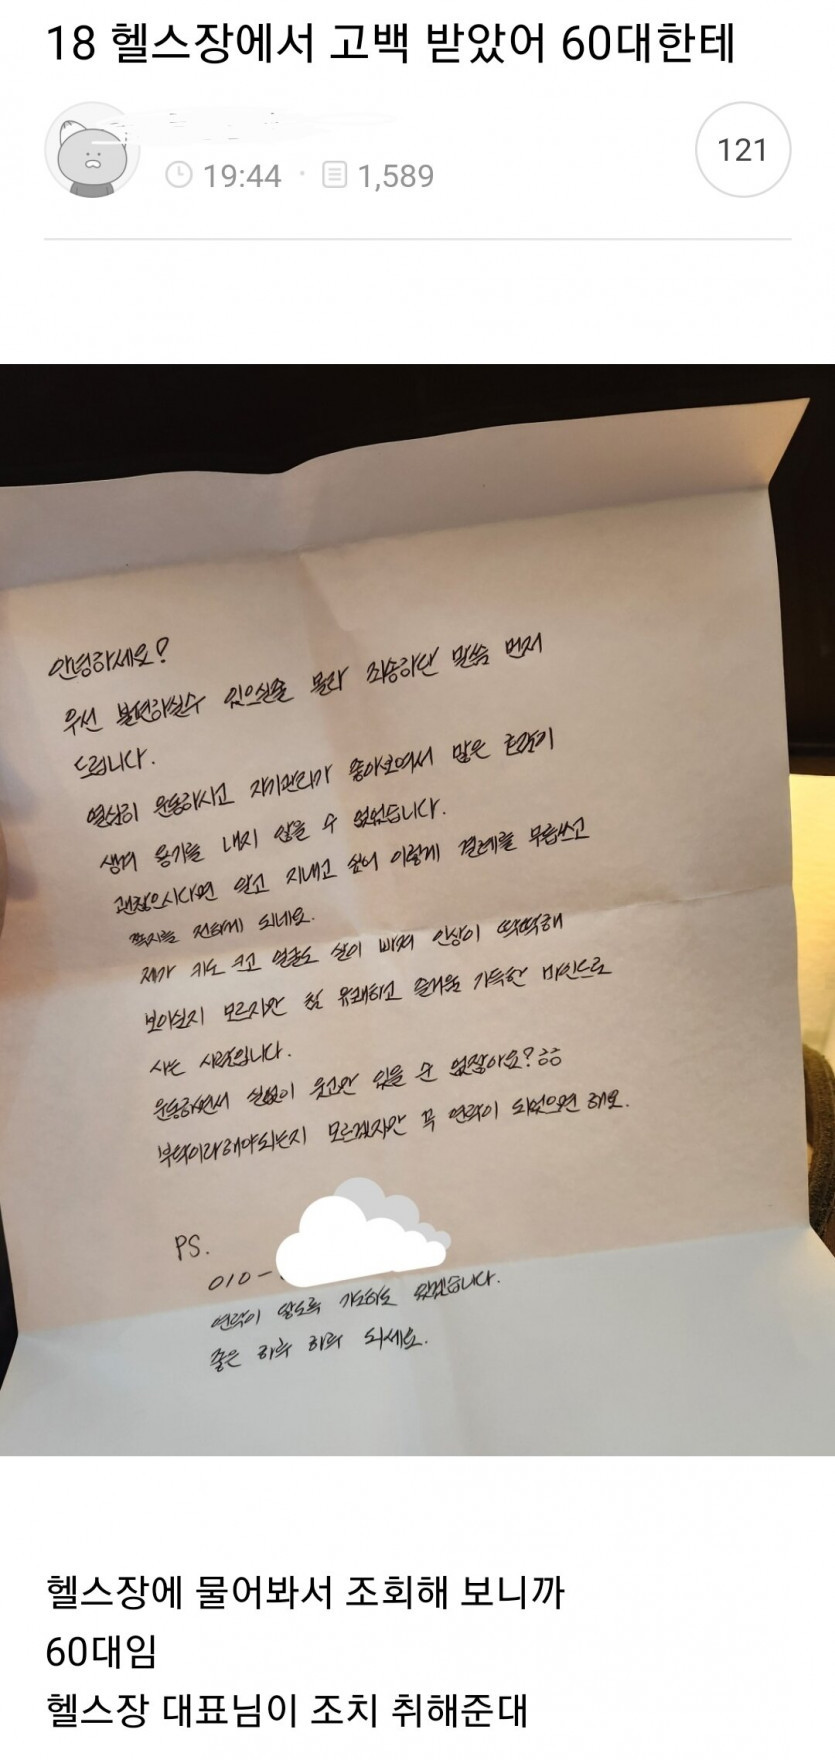 18 헬스장에서 고백 받았어 60대한테
19:44 · 1,589
121
안녕하세요?
우선 불편하실수 있으실줄 몰라 죄송하단 말씀 먼저
드립니다.
열심히 운동하시고 자기관리가 좋아보여서 많은 호감이
생겨 용기를 내지 않을 수 없었습니다.
괜찮으시다면 알고 지내고 싶어 이렇게 결례를 무릅쓰고
쪽지를 전하게 되네요.
제가 키도 크고 얼굴도 살이 빠져 인상이 딱딱해
보이실지 모르지만 참 유쾌하고 즐거움 가득한 마인드로
사는 사람입니다.
운동하면서 실없이 웃고만 있을 순 없잖아요? ㅎㅎ
부탁이라해야되는지 모르겠지만 꼭 연락이 되었으면 해요.
PS.
010-
연락이 않도록 기도하고 있겠습니다.
좋은 하루 하루 되세요.
헬스장에 물어봐서 조회해 보니까
60대임
헬스장 대표님이 조치 취해준대